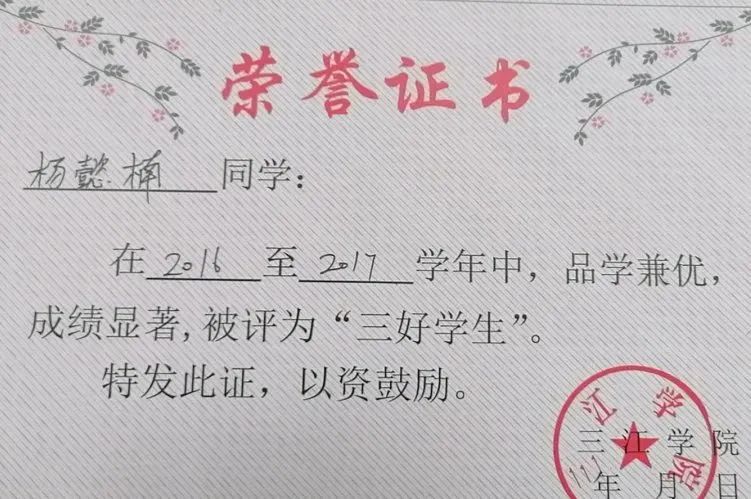 荣誉证书
杨懿楠 同学：
在 2016 至 2017 学年中，品学兼优，
成绩显著，被评为“三好学生”。
特发此证，以资鼓励。
三江学院
三江学院
年 月 日